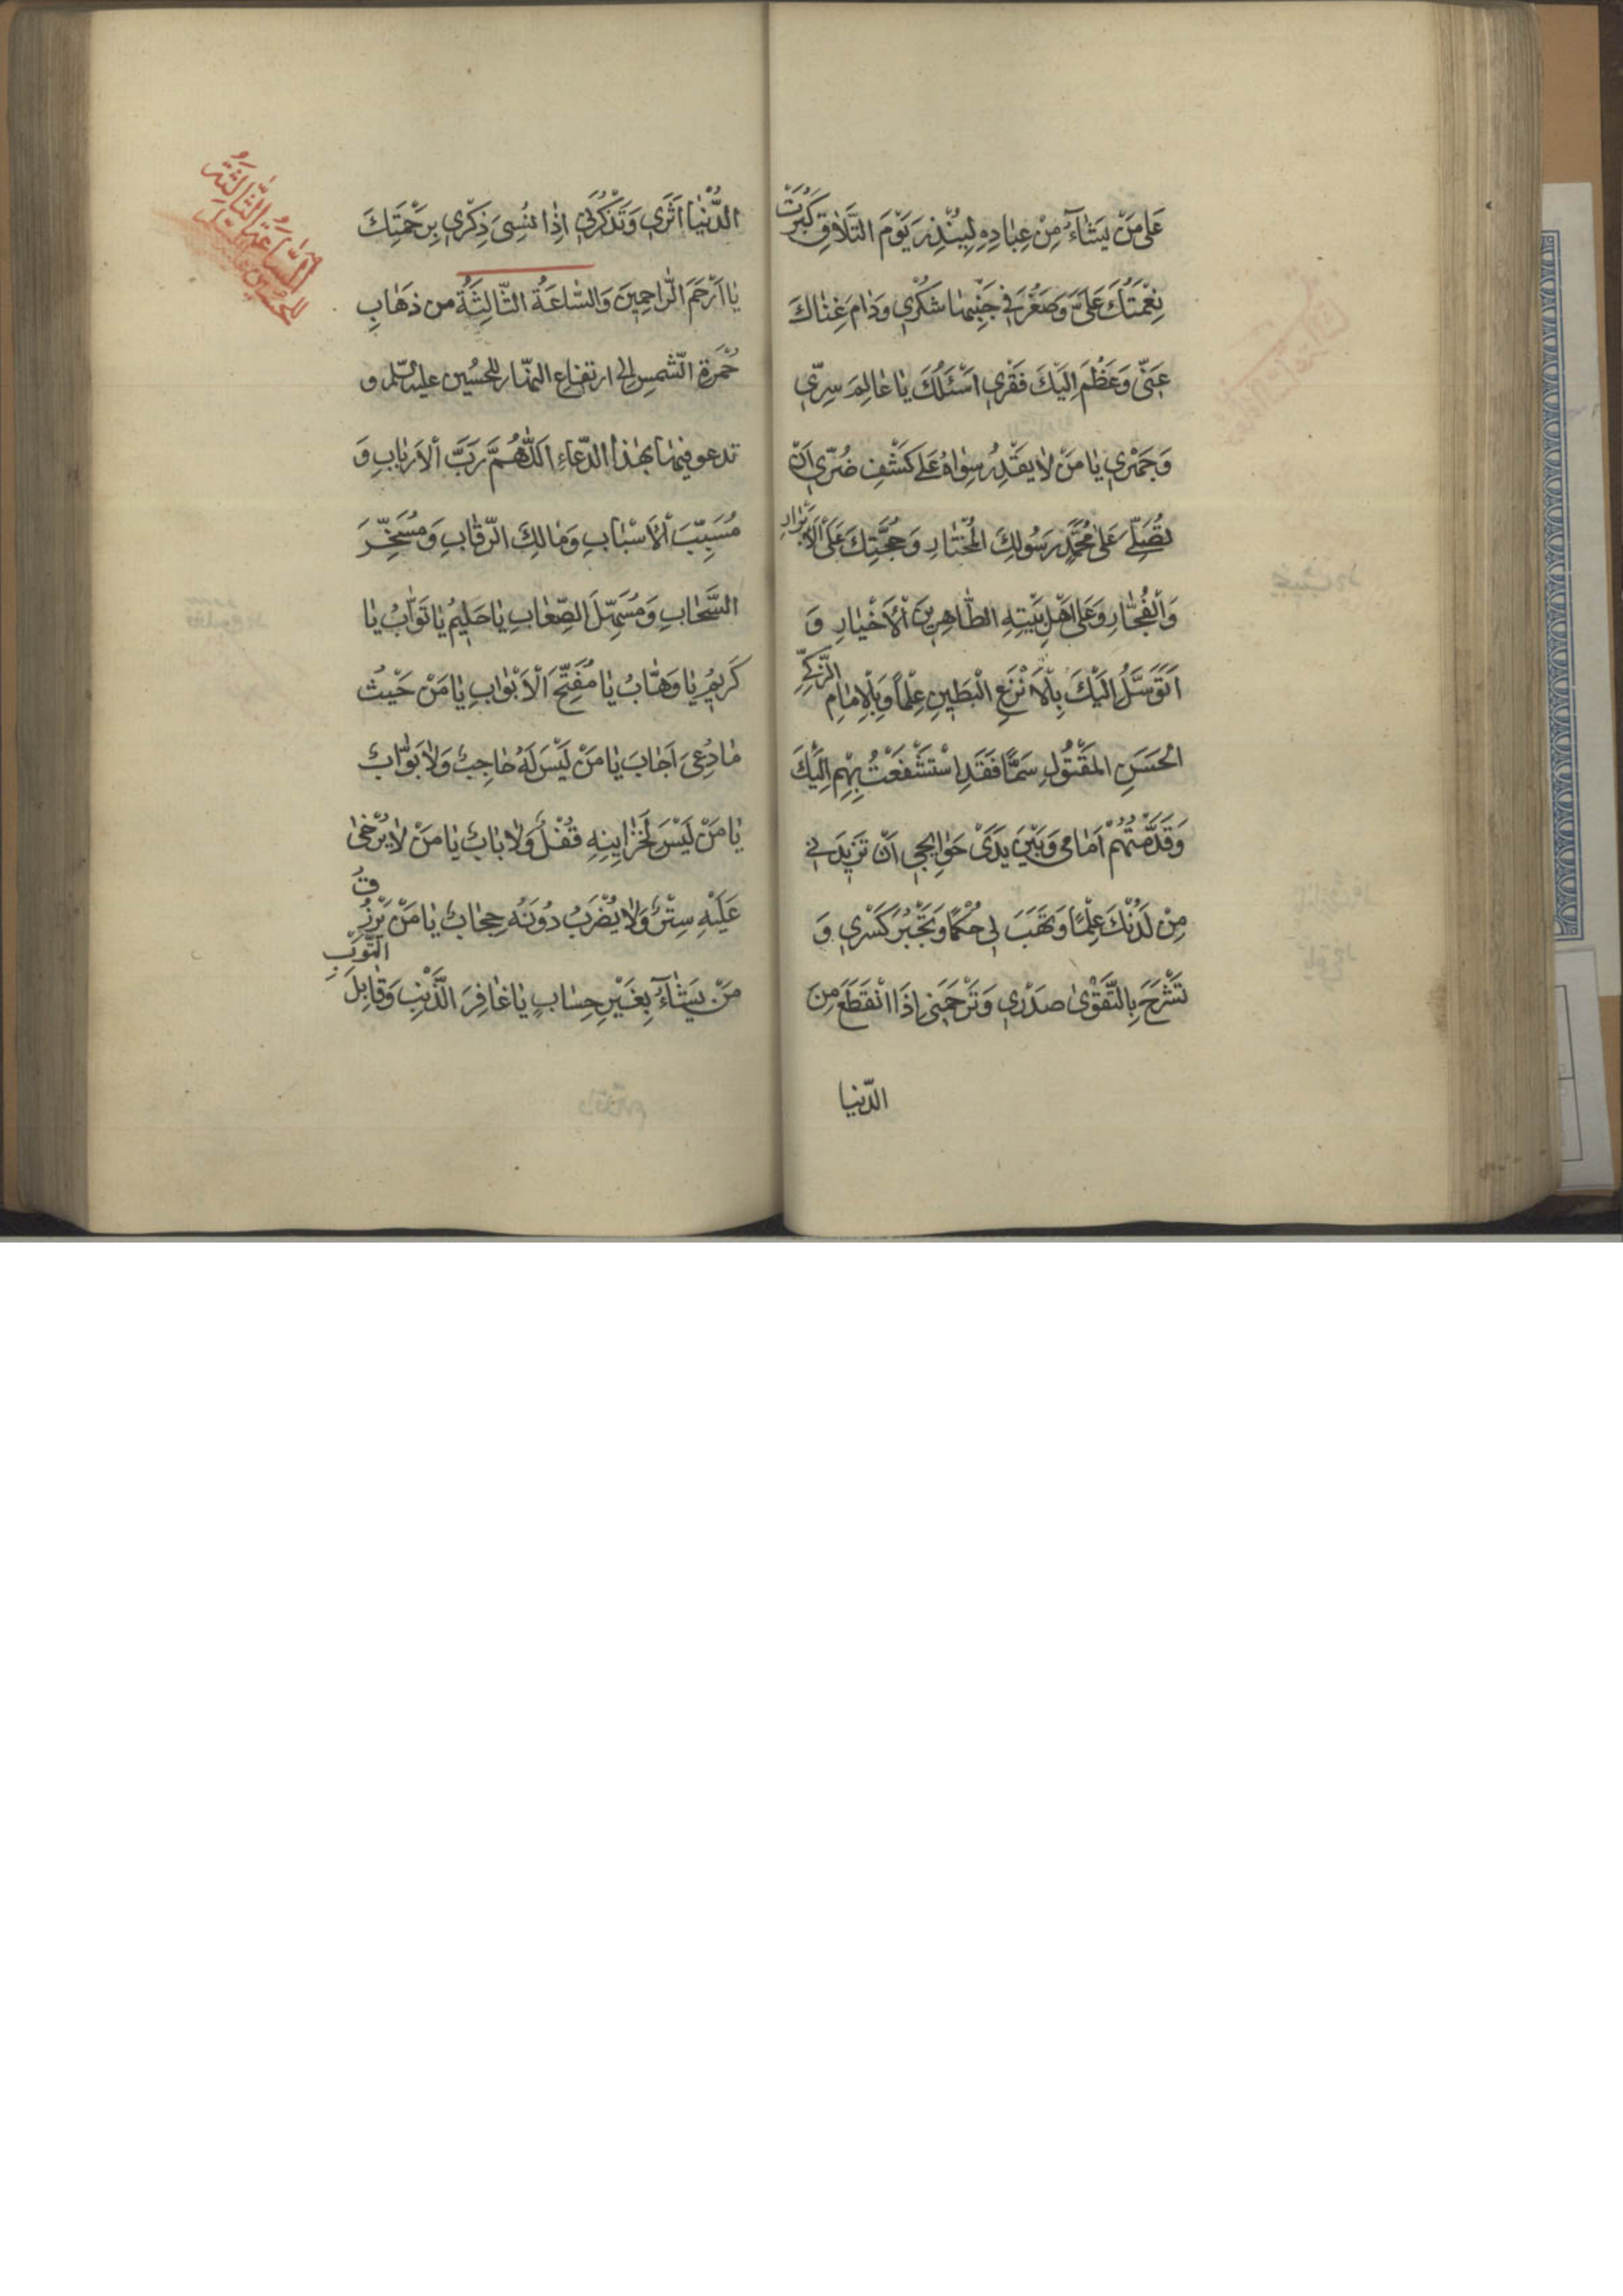 عَلىٰ مَنْ يَشٰاءُ مِنْ عِبٰادِهِ لِيُنْذِرَ يَوْمَ التَّلٰاقِ كَبُرَتْ
نِعْمَتُكَ عَلَىَّ وَصَغُرَ في جَنْبِهٰا شُكْري وَدٰامَ غِنٰاكَ
عَنّى وَعَظُمَ اِلَيْكَ فَقْري اَسْئَلُكَ يٰا عٰالِمَ سِرّي
وَجَهْري يٰا مَنْ لٰا يَقْدِرُ سِوٰاهُ عَلىٰ كَشْفِ ضُرّي اَنْ
تُصَلِّىَ عَلىٰ مُحَمَّدٍ رَسُولِكَ الْمُخْتٰارِ وَحُجَّتِكَ عَلَى الْاَبْرٰارِ
وَالْفُجّٰارِ وَعَلىٰ اَهْلِ بَيْتِهِ الطّٰاهِرينَ الْاَخْيٰارِ وَ
اَتَوَسَّلُ اِلَيْكَ بِالْاَنْزَعِ الْبَطينِ عِلْماً وَبِالْاِمٰامِ الزَّكِيِّ
الْحَسَنِ الْمَقْتُولِ سَمّاً فَقَدِ اسْتَشْفَعْتُ بِهِمْ اِلَيْكَ
وَقَدَّمْتُهُمْ اَمٰامي وَبَيْنَ يَدَىْ حَوٰائِجي اَنْ تَزيدَني
مِنْ لَدُنْكَ عِلْماً وَتَهَبَ لى حُكْماً وَتَجْبُرَ كَسْري وَ
تَشْرَحَ بِالتَّقْوىٰ صَدْري وَتَرْحَمَني اِذَا انْقَطَعَ مِنَ
الدّنيا
الدُّنْيٰا اَثَري وَتَذْكُرَني اِذٰا نُسِىَ ذِكْري بِرَحْمَتِكَ
يٰا اَرْحَمَ الرّاحِمينَ وَالسّٰاعَةُ الثّٰالِثَةُ من ذهٰابِ
حُمْرَةِ الشّمس الى ارتفاع النهّار للحُسين عليه السّلم و
تدعو فيهٰا بهٰذا الدّعٰاءِ اَللّٰهُمَّ رَبَّ الْاَرْبٰابِ وَ
مُسَبِّبَ الْاَسْبٰابِ وَمٰالِكَ الرِّقٰابِ وَمُسَخِّرَ
السَّحٰابِ وَمُسَهِّلَ الصِّعٰابِ يٰا حَليمُ يٰا تَوّٰابُ يٰا
كَريمُ يٰا وَهّٰابُ يٰا مُفَتِّحَ الْاَبْوٰابِ يٰا مَنْ حَيْثُ
مٰا دُعِىَ اَجٰابَ يٰا مَنْ لَيْسَ لَهُ حٰاجِبٌ وَلٰا بَوّٰابٌ
يٰا مَنْ لَيْسَ لِخَزٰايِنِهِ قُفْلٌ وَلٰا بٰابٌ يٰا مَنْ لٰا يُرْخىٰ
عَلَيْهِ سِتْرٌ وَلٰا يُضْرَبُ دُونَهُ حِجٰابٌ يٰا مَنْ يَرْزُقُ
مَنْ يَشٰاءُ بِغَيْرِ حِسٰابٍ يٰا غٰافِرَ الذَّنْبِ وَقٰابِلَ التَّوْبِ
السّٰاعَةُ الثّٰالِثَةُ